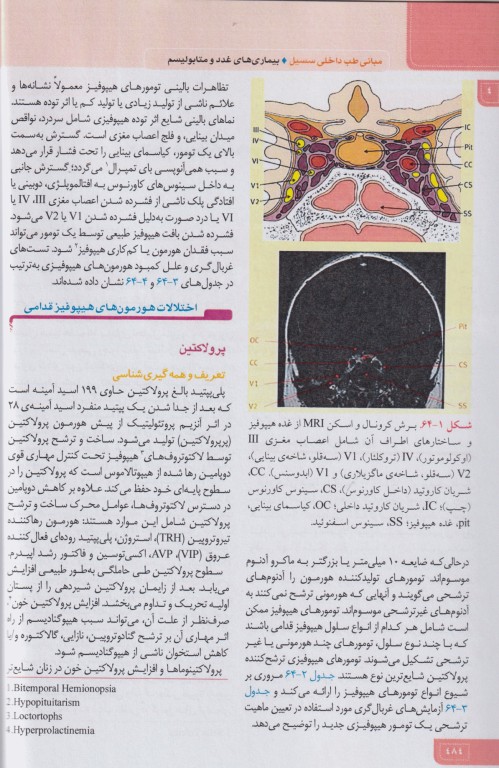 مبانی طب داخلی سسیل ♦ بیماری‌های غدد و متابولیسم
٤
III
IV
VI
V1
V2
IC
Pit
CC
CS
SS
OC
CC
V1
V2
Pit
CS
SS
شکل ۱-۶۴ برش کرونال و اسکن MRI از غده هیپوفیز
و ساختارهای اطراف آن شامل اعصاب مغزی III
(اوکولوموتور)، IV (تروکلئار)، V1 (سه‌قلو، شاخه‌ی بینایی)،
V2 (سه‌قلو، شاخه‌ی ماگزیلاری) و V1 (ابدوسنس). CC،
شریان کاروتید (داخل کاورنوس)، CS، سینوس کاورنوس
(چپ)؛ IC، شریان کاروتید داخلی؛ OC، کیاسمای بینایی،
pit، غده هیپوفیز؛ SS، سینوس اسفنوئید.
درحالی‌که ضایعه ۱۰ میلی‌متر یا بزرگتر به ماکرو آدنوم
موسوم‌اند. تومورهای تولیدکننده هورمون را آدنوم‌های
ترشحی می‌گویند و آنهایی که هورمونی ترشح نمی‌کنند به
آدنوم‌های غیرترشحی موسوم‌اند. تومورهای هیپوفیز ممکن
است شامل هر کدام از انواع سلول هیپوفیز قدامی باشند
که با چند نوع سلول، تومورهای چند هورمونی یا غیر
ترشحی تشکیل می‌شوند تومورهای هیپوفیزی ترشح‌کننده
پرولاکتین شایع‌ترین نوع هستند. جدول ۲-۶۴ مروری بر
شیوع انواع تومورهای هیپوفیز را ارائه می‌کند و جدول
۳-۶۴ آزمایش‌های غربال‌گری مورد استفاده در تعیین ماهیت
ترشحی یک تومور هیپوفیزی جدید را توضیح می‌دهد.
تظاهرات بالینی تومورهای هیپوفیز معمولاً نشانه‌ها و
علائم ناشی از تولید زیادی یا تولید کم یا اثر توده هستند.
نماهای بالینی شایع اثر توده هیپوفیزی شامل سردرد، نواقص
میدان بینایی، و فلج اعصاب مغزی است. گسترش به‌سمت
بالای یک تومور، کیاسمای بینایی را تحت فشار قرار می‌دهد
و سبب همی‌آنوپسی بای تمپرال۱ می‌گردد؛ گسترش جانبی
به داخل سینوس‌های کاورنوس به افتالموپلژی، دوبینی یا
افتادگی پلک ناشی از فشرده شدن اعصاب مغزی III، IV یا
VI یا درد صورت به‌دلیل فشرده شدن V1 یا V2 می‌شود.
فشرده شدن بافت هیپوفیز طبیعی توسط یک تومور می‌تواند
سبب فقدان هورمون یا کم‌کاری هیپوفیز۲ شود. تست‌های
غربال‌گری و علل کمبود هورمون‌های هیپوفیزی به‌ترتیب
در جدول‌های ۳-۶۴ و ۴-۶۴ نشان داده شده‌اند.
اختلالات هورمون‌های هیپوفیز قدامی
پرولاکتین
تعریف و همه‌گیری‌شناسی
پلی‌پپتید بالغ پرولاکتین حاوی ۱۹۹ اسید آمینه است
که بعد از جدا شدن یک پپتید منفرد اسید آمینه‌ی ۲۸
در اثر آنزیم پروتئولیتیک از پیش هورمون پرولاکتین
(پرپرولاکتین) تولید می‌شود. ساخت و ترشح پرولاکتین
توسط لاکتوتروف‌های۳ هیپوفیز تحت کنترل مهاری قوی
دوپامین رها شده از هیپوتالاموس است که پرولاکتین را در
سطوح پایه‌ای خود حفظ می‌کند علاوه بر کاهش دوپامین
در دسترس لاکتوتروف‌ها، عوامل محرک ساخت و ترشح
پرولاکتین شامل این موارد هستند: هورمون رهاکننده
تیروتروپین (TRH)، استروژن، پلی‌پپتید روده‌ای فعال‌کننده
عروق (VIP)، AVP، اکسی‌توسین و فاکتور رشد اپیدرم.
سطوح پرولاکتین طی حاملگی به‌طور طبیعی افزایش
می‌یابد. بعد از زایمان پرولاکتین شیردهی را از پستان
اولیه تحریک و تداوم می‌بخشد. افزایش پرولاکتین خون۴،
صرف‌نظر از علت آن، می‌تواند سبب هیپوگنادیسم از راه
اثر مهاری آن بر ترشح گنادوتروپین، نازایی، گالاکتوره و/یا
کاهش استخوان ناشی از هیپوگنادیسم شود.
پرولاکتینوما‌ها و افزایش پرولاکتین خون در زنان شایع‌تر
1.Bitemporal Hemionopsia
2.Hypopituitarism
3.Loctortophs
4.Hyperprolactinemia
٤٨٤